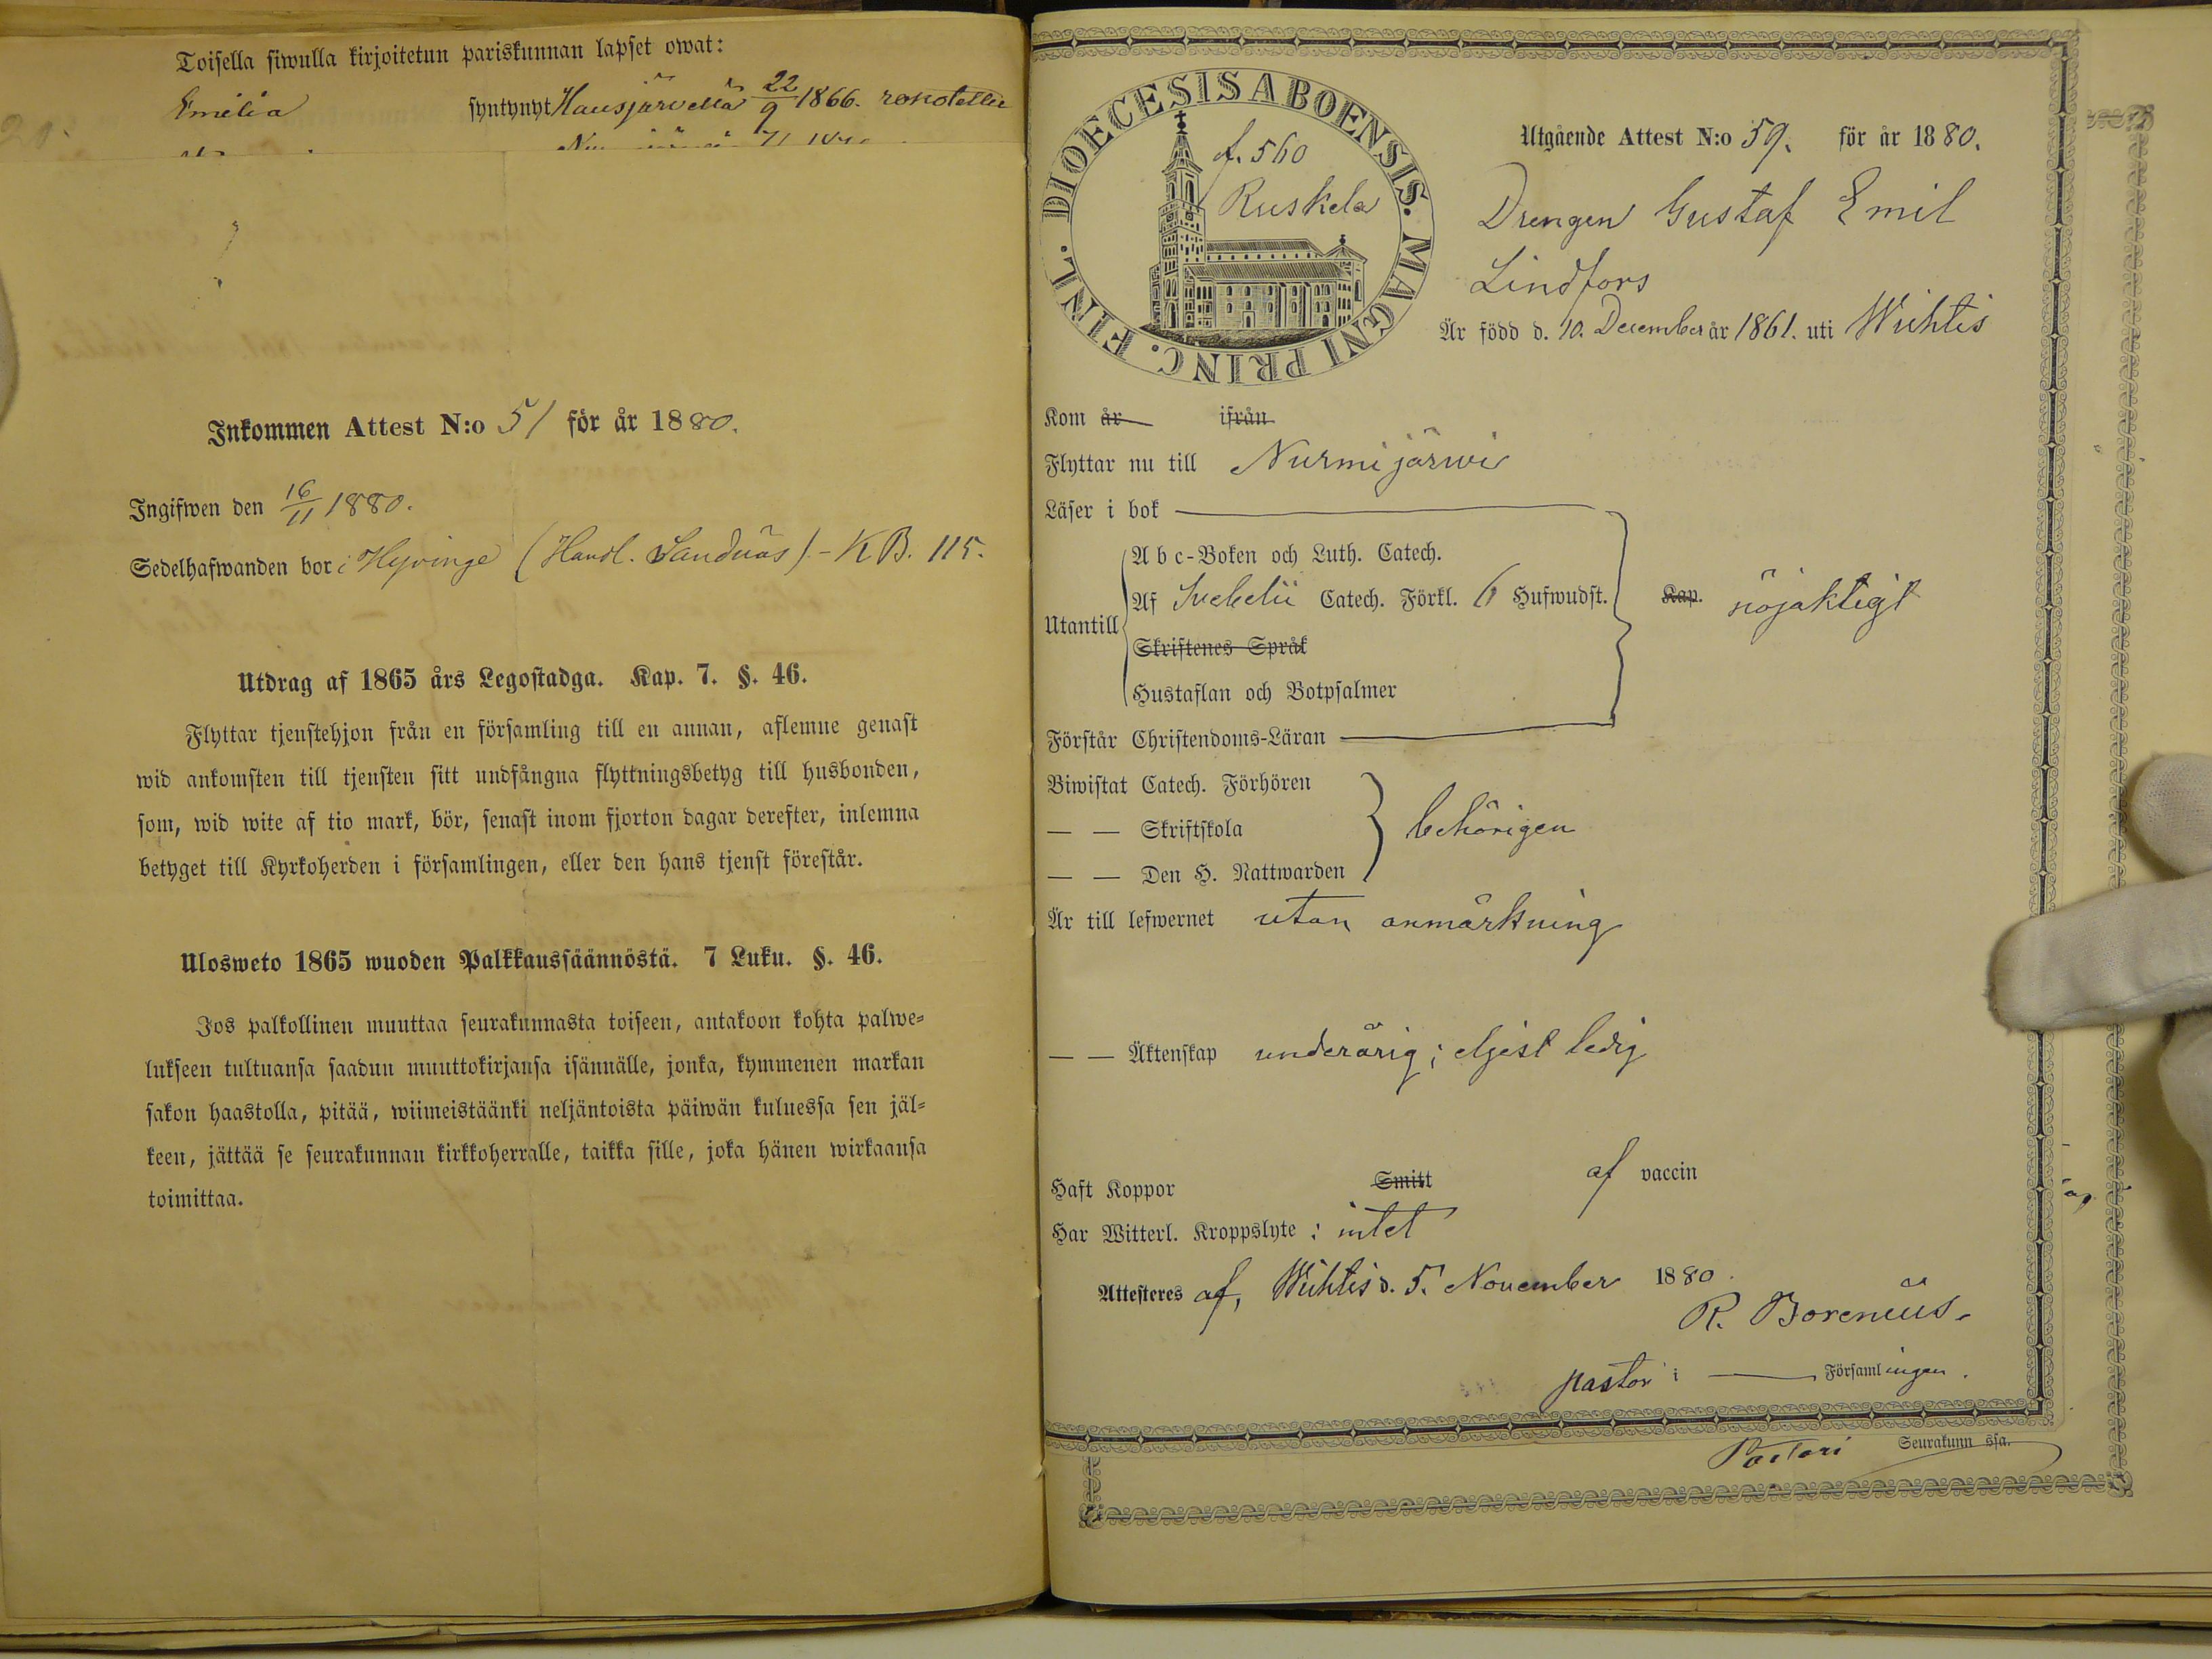 Toisella siwulla kirjoitetun pariskunnan lapset owat:
Emilia syntynyt Hausjärvellä 22/9 1866. rokotettu
Inkommen Attest N:o 51 för år 1880.
Ingifwen den 16/11 1880.
Sedelhafwanden bor i Hyvinge (Handl. Sandnäs). - KB. 115.
Utdrag af 1865 års Legostadga. Kap. 7. §. 46.
Flyttar tjenstehjon från en församling till en annan, aflemne genast
wid ankomsten till tjensten sitt undfångna flyttningsbetyg till husbonden,
som, wid wite af tio mark, bör, senast inom fjorton dagar derefter, inlemna
betyget till Kyrkoherden i församlingen, eller den hans tjenst förestår.
Ulosweto 1865 wuoden Palkkaussäännöstä. 7 Luku. §. 46.
Jos palkollinen muuttaa seurakunnasta toiseen, antakoon kohta palwe-
lukseen tultuansa saadun muuttokirjansa isännälle, jonka, kymmenen markan
sakon haastolla, pitää, wiimeistäänki neljäntoista päiwän kuluessa sen jäl-
keen, jättää se seurakunnan kirkkoherralle, taikka sille, joka hänen wirkaansa
toimittaa.
DIOECESIS ABOENSIS. MAGNI PRINC. FINL.
f. 560
Ruskela
Utgående Attest N:o 59. för år 1880.
Drengen Gustaf Emil
Lindfors
Är född d. 10. December år 1861. uti Wichtis
Kom år ifrån
Flyttar nu till Nurmijärwi
Läser i bok
Utantill
A b c-Boken och Luth. Catech.
Af Svebelii Catech. Förkl. 6 Hufwudst. Kap. nöjaktigt
Skriftenes Språk
Hustaflan och Botpsalmer
Förstår Christendoms-Läran
Biwistat Catech. Förhören
— — Skriftskola behörigen
— — Den H. Nattwarden
Är till lefwernet utan anmärkning
— — Äktenskap underårig; eljest ledig
Haft Koppor Smitt af vaccin
Har Witterl. Kroppslyte : intet
Attesteras af, Wichtis d. 5. November 1880.
R. Borenius.
pastor i Församlingen.
Pastori Seurakunn ssa.